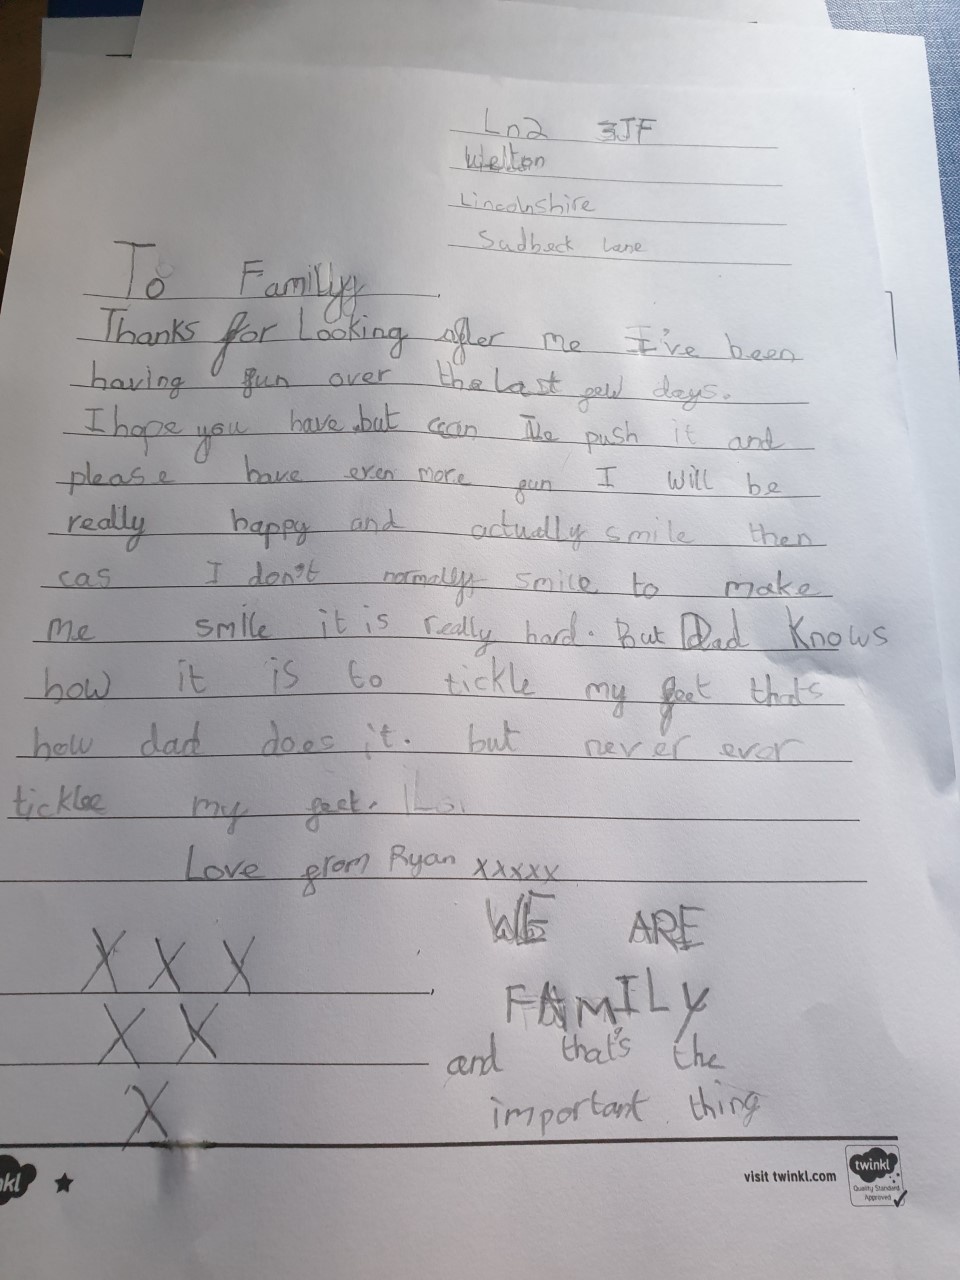 Ln2 3JF
Welton
Lincolnshire
Sudbeck Lane
To Family
Thanks for Looking after me I've been
having fun over the last few days.
I hope you have but can push it and
please have even more fun I will be
really happy and actually smile then
cas I don't normally smile to make
me smile it is really hard. But Dad Knows
how it is to tickle my feet thats
how dad does it. but never ever
ticklee my feet.
Love from Ryan xxxxx
WE ARE
FAMILY
and that's the
important thing
X X X
X X
X
visit twinkl.com
twinkl
Quality Standard
Approved